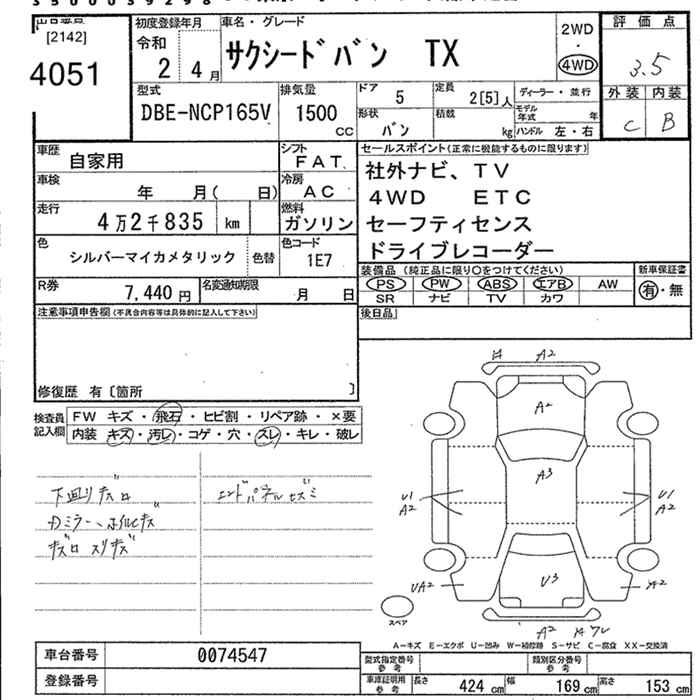 [2142]
4051
初度登録年月
令和
2 4月
車名・グレード
サクシードバン TX
2WD
・
4WD
評価点
3.5
外装 内装
C B
型式
DBE-NCP165V
排気量
1500
CC
ドア 5
定員 2[5]人
ディーラー・並行
形状 バン
積載 kg
モデル年式 年
ハンドル 左・右
車歴 自家用
シフト
FAT
セールスポイント(正常に機能するものに限ります)
社外ナビ、TV
4WD ETC
セーフティセンス
ドライブレコーダー
車検 年 月( 日)
冷房
AC
走行 4万2千835 km
燃料
ガソリン
色 シルバーマイカメタリック 色替
色コード
1E7
装備品(純正品に限り○をつけてください)
新車保証書
PS PW ABS エアB AW
有・無
SR ナビ TV カワ
R券 7,440円
名変通知期限 月 日
注意事項申告欄(不具合内容等は具体的に記入して下さい)
後日品
修復歴 有〔箇所 〕
検査員記入欄
FW キズ・飛石・ヒビ割・リペア跡・×要
内装 キズ・汚レ・コゲ・穴・スレ・キレ・破レ
下廻りサビ
エンドパネルセズミ
A2
A2
A3
U1
A2
U1
A2
UA2
U3
A2
スペア
A-キズ E-エクボ U-凹み W-補修跡 S-サビ C-腐食 XX-交換済
車台番号 0074547
登録番号
型式指定番号 参考
類別区分番号 参考
車庫証明用 参考
長さ 424 cm
幅 169 cm
高さ 153 cm